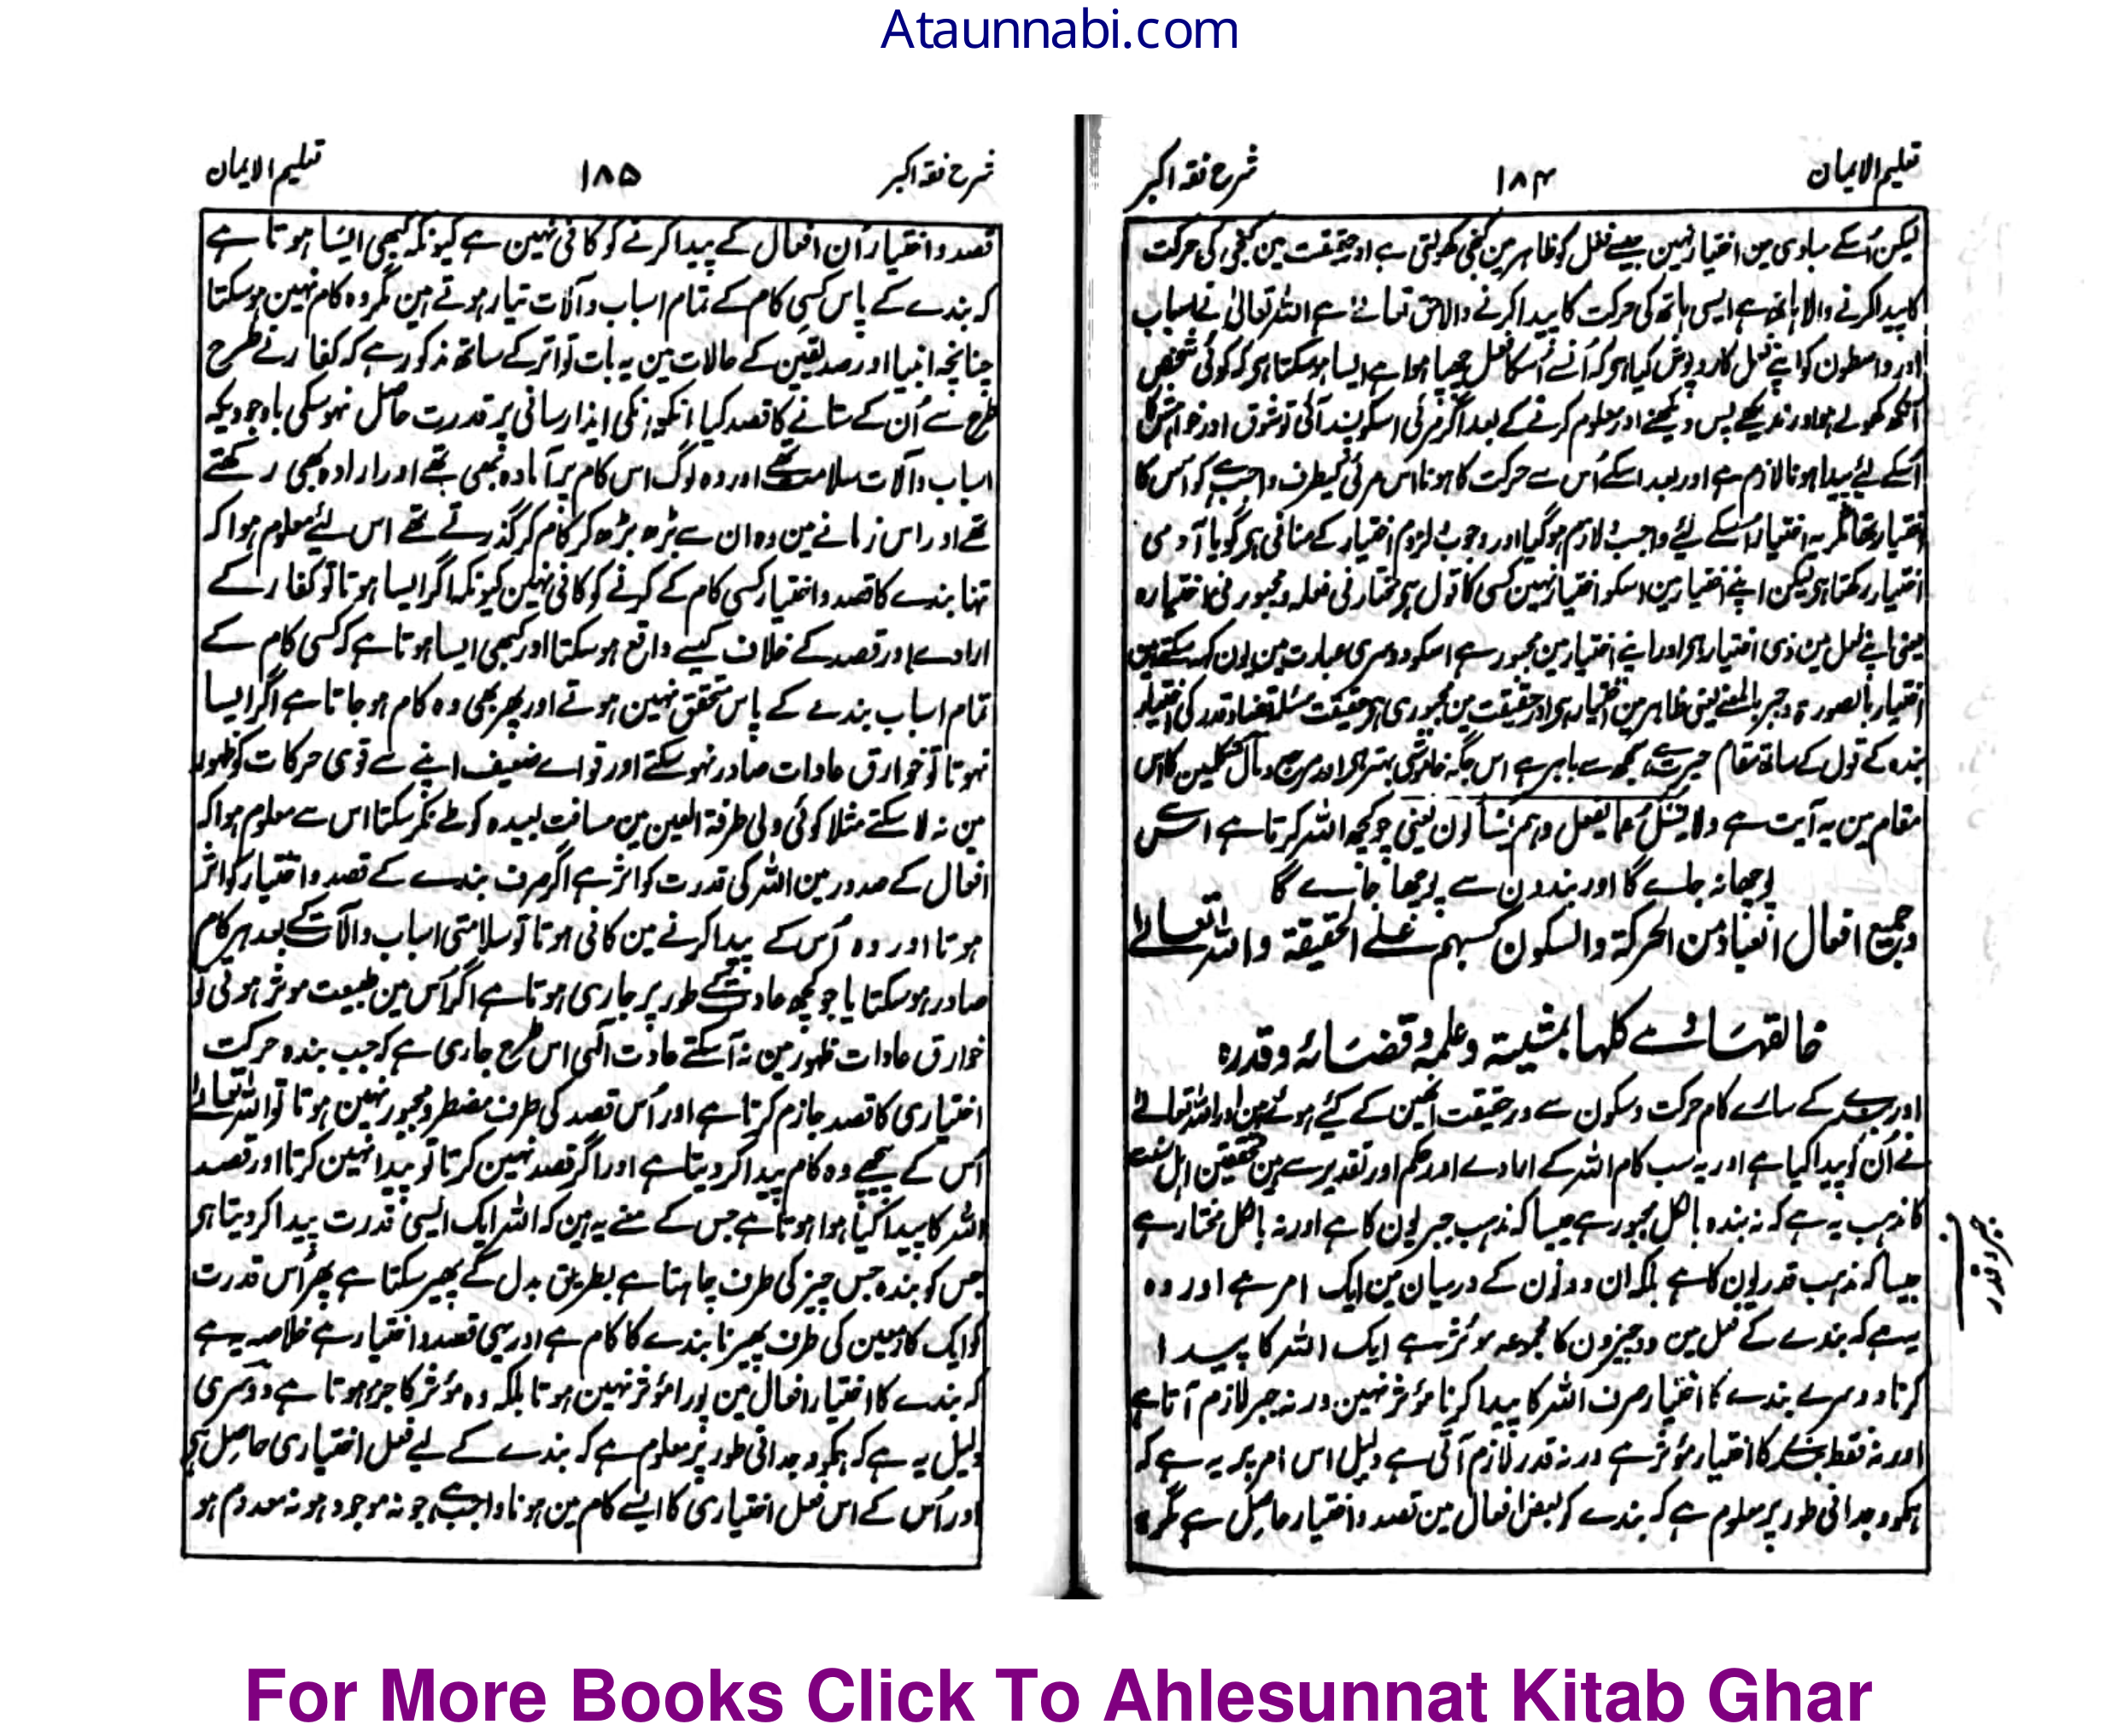 Ataunnabi.com
تعلیم الایمان ۱۸۴ شرح فقہ اکبر
لیکن اُسکے مبادی مین اختیار نہین جیسے قفل کو ظاہر مین کنجی کھولتی ہے اور حقیقت مین کنجی کی حرکت
کا پیدا کرنے والا ہاتھ ہے ایسی ہاتھ کی حرکت کا پیدا کرنے والا حق تعالےٰ ہے اللہ تعالیٰ نے اسباب
اور واسطون کو اپنے فعل کا روپوش کیا ہو کہ اُنسے اُسکا فعل چھپا ہوا ہے ایسا ہو سکتا ہو کہ کوئی شخص
آنکھ کھولے ہو اور ندیکھے پس دیکھنے اور معلوم کرنے کے بعد اگر مرئی اسکو پسند آئی تو شوق اور خواہش کا
اُسکے لیے پیدا ہونا لازم ہے اور بعد اسکے اُس سے حرکت کا ہونا اس مرئی کیطرف واجب ہے کو اُس کا
اختیار تھا مگر یہ اختیار اُسکے لیے واجب و لازم ہو گیا اور وجوب و لزوم اختیار کے منافی ہو گویا آدمی
اختیار رکھتا ہو لیکن اپنے اختیار مین اسکو اختیار نہین کسی کا قول ہو مختار فی فعلہ و مجبور فی اختیارہ
یعنی اپنے فعل مین ذی اختیار ہو اور اپنے اختیار مین مجبور ہے اسکو دوسری عبارت مین یون کہہ سکتے ہین
اختیار بالصورۃ و جبر بالمعنے یعنی ظاہر مین اختیار ہو اور حقیقت مین مجبوری ہو حقیقت مسئلہ قضا و قدر کی اختیار
بندہ کے قول کے ساتھ مقام حیرت ہے سمجھ سے باہر ہے اس جگہ خاموشی بہتر ہو اور مرجع و مآل متکلمین کا اس
مقام مین یہ آیت ہے ولا یسئل عما یفعل وہم یسئلون یعنی جو کچھ اللہ کرتا ہے اس سے
پوچھا نہ جاے گا اور بندون سے پوچھا جاے گا
وجمیع افعال العباد من الحرکۃ والسکون کسبہم علے الحقیقۃ واللہ تعالےٰ
خالقہا وہے کلہا بمشیتہ وعلمہ وقضائہ وقدرہ
اور بندے کے سارے کام حرکت و سکون سے درحقیقت انھین کے کیے ہوئے ہین اور اللہ تعالےٰ
نے اُن کو پیدا کیا ہے اور یہ سب کام اللہ کے ارادے اور حکم اور تقدیر سے ہین محققین اہل سنت
کا مذہب یہ ہے کہ نہ بندہ بالکل مجبور ہے جیسا کہ مذہب جبریون کا ہے اور نہ بالکل مختار ہے
جیسا کہ مذہب قدریون کا ہے بلکہ ان دونون کے درمیان مین ایک امر ہے اور وہ
یہ ہے کہ بندے کے فعل مین دو چیزون کا مجموعہ مؤثر ہے ایک اللہ کا پیدا
کرنا دوسرے بندے کا اختیار صرف اللہ کا پیدا کرنا مؤثر نہین ورنہ جبر لازم آتا ہے
اور نہ فقط بندے کا اختیار مؤثر ہے ورنہ قدر لازم آتی ہے دلیل اس امر پر یہ ہے کہ
ہمکو وجدانی طور پر معلوم ہے کہ بندے کو بعض افعال مین قصد و اختیار حاصل ہے مگر یہ
جبر و قدر
شرح فقہ اکبر ۱۸۵ تعلیم الایمان
قصد و اختیار اُن افعال کے پیدا کرنے کو کافی نہین ہے کیونکہ کبھی ایسا ہوتا ہے
کہ بندے کے پاس کسی کام کے تمام اسباب و آلات تیار ہوتے ہین مگر وہ کام نہین ہو سکتا
چنانچہ انبیا اور صدیقین کے حالات مین یہ بات تواتر کے ساتھ مذکور ہے کہ کفار نے طرح
طرح سے اُن کے ستانے کا قصد کیا انکو انکی ایذا رسانی پر قدرت حاصل نہو سکی باوجودیکہ
اسباب و آلات سلامت تھے اور وہ لوگ اس کام پر آمادہ بھی تھے اور ارادہ بھی رکھتے
تھے اور اس زمانے مین وہ ان سے بڑھ بڑھ کر کام کر گذرتے تھے اس لیے معلوم ہوا کہ
تنہا بندے کا قصد و اختیار کسی کام کے کرنے کو کافی نہین کیونکہ اگر ایسا ہوتا تو کفار کے
ارادے اور قصد کے خلاف کیسے واقع ہو سکتا اور کبھی ایسا ہوتا ہے کہ کسی کام کے
تمام اسباب بندے کے پاس متحقق نہین ہوتے اور پھر بھی وہ کام ہو جاتا ہے اگر ایسا
نہوتا تو خوارق عادات صادر نہو سکتے اور قواے ضعیف اپنے سے قوی حرکات کو ظہور
مین نہ لا سکتے مثلا کوئی ولی طرفۃ العین مین مسافت بعیدہ کو طے نکر سکتا اس سے معلوم ہوا کہ
افعال کے صدور مین اللہ کی قدرت کو اثر ہے اگر صرف بندے کے قصد و اختیار کو اثر
ہوتا اور وہ اُس کے پیدا کرنے مین کافی ہوتا تو سلامتی اسباب و آلات کے بعد ہر کام
صادر ہو سکتا یا جو کچھ عادت کے طور پر جاری ہوتا ہے اگر اُس مین طبیعت موثر ہوتی تو
خوارق عادات ظہور مین نہ آ سکتے عادت الٰہی اس طرح جاری ہے کہ جب بندہ حرکت
اختیاری کا قصد جازم کرتا ہے اور اُس قصد کی طرف مضطر و مجبور نہین ہوتا تو اللہ تعالےٰ
اُس کے پیچھے وہ کام پیدا کر دیتا ہے اور اگر قصد نہین کرتا تو پیدا نہین کرتا اور قصد
اللہ کا پیدا کیا ہوا ہوتا ہے جس کے معنے یہ ہین کہ اللہ ایک ایسی قدرت پیدا کر دیتا ہو
جس کو بندہ جس چیز کی طرف چاہتا ہے بطریق بدل کے پھیر سکتا ہے پھر اُس قدرت
کو ایک کام معین کی طرف پھیرنا بندے کا کام ہے اور یہی قصد و اختیار ہے خلاصہ یہ ہے
کہ بندے کا اختیار افعال مین پورا مؤثر نہین ہوتا بلکہ وہ مؤثر کا جزو ہوتا ہے دوسری
دلیل یہ ہے کہ ہمکو وجدانی طور پر معلوم ہے کہ بندے کے لیے فعل اختیاری حاصل ہے
اور اُس کے اس فعل اختیاری کا ایسے کام مین ہونا واجب ہے جو نہ موجود ہو نہ معدوم ہو
For More Books Click To Ahlesunnat Kitab Ghar